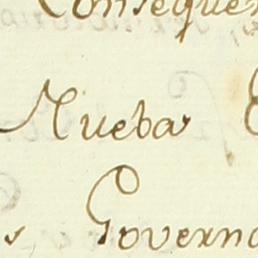 Conseque
Nueba
s Governa